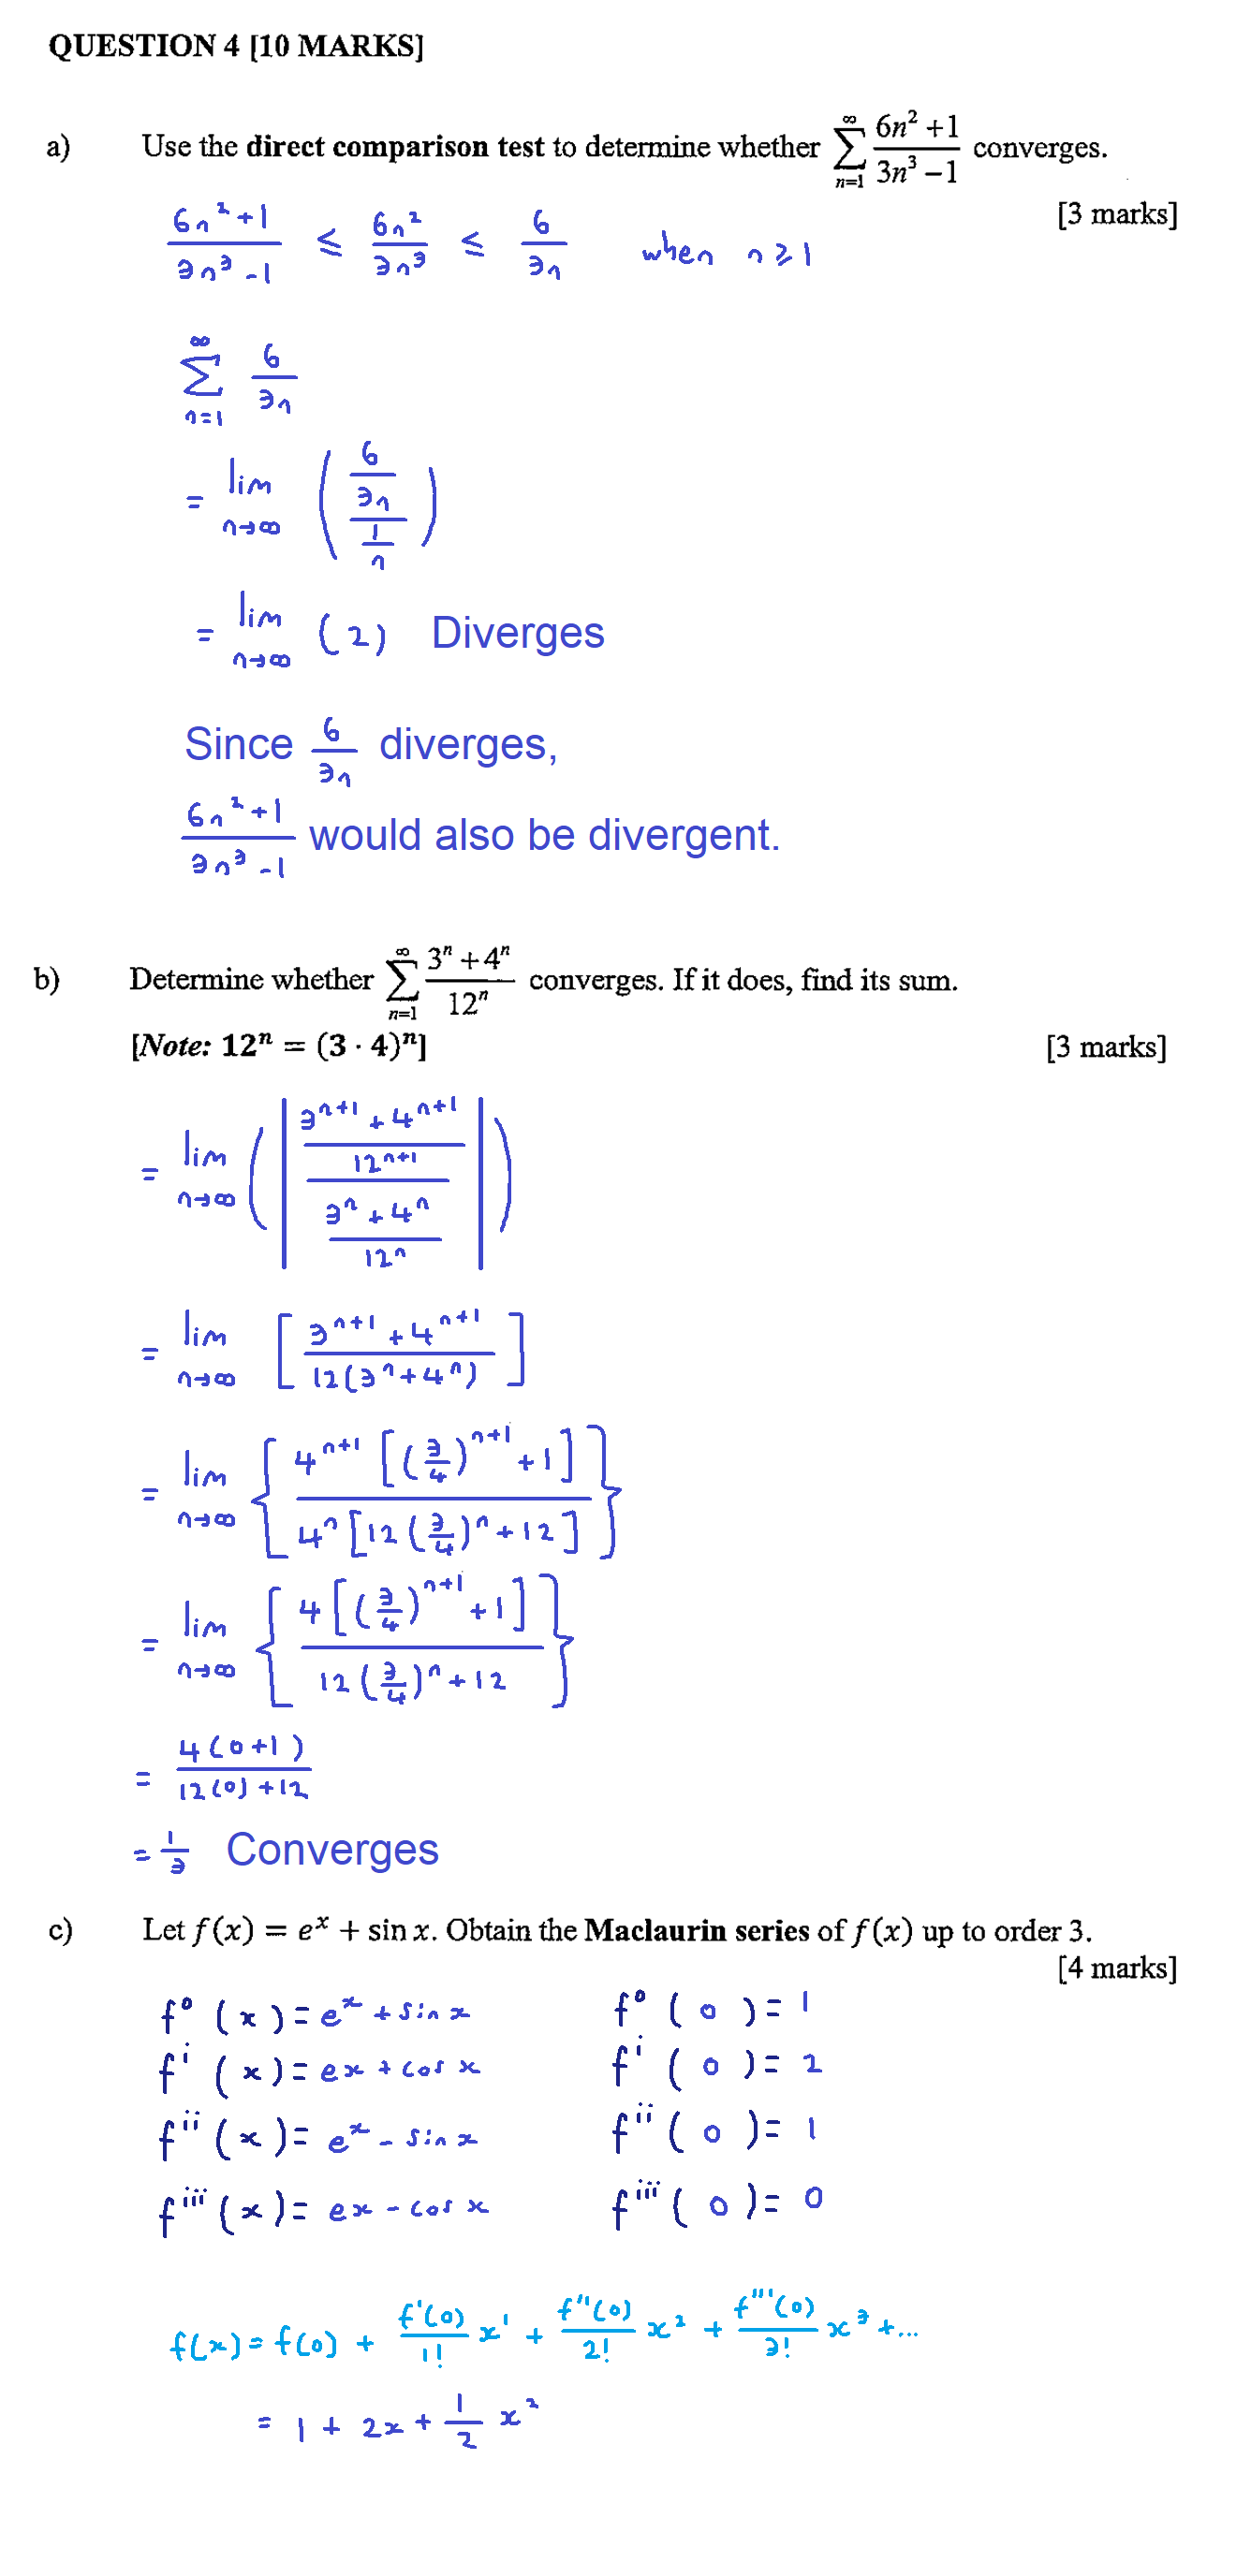 QUESTION 4 [10 MARKS]
a) Use the direct comparison test to determine whether \sum_{n=1}^{\infty} \frac{6n^2+1}{3n^3-1} converges.
[3 marks]
\frac{6n^2+1}{3n^3-1} ≤ \frac{6n^2}{3n^3} ≤ \frac{6}{3n} when n ≥ 1
\sum_{n=1}^{\infty} \frac{6}{3n}
= \lim_{n→∞} \left( \frac{\frac{6}{3n}}{\frac{1}{n}} \right)
= \lim_{n→∞} (2) Diverges
Since \frac{6}{3n} diverges,
\frac{6n^2+1}{3n^3-1} would also be divergent.
b) Determine whether \sum_{n=1}^{\infty} \frac{3^n+4^n}{12^n} converges. If it does, find its sum.
[Note: 12^n = (3 · 4)^n] [3 marks]
= \lim_{n→∞} \left( \left| \frac{\frac{3^{n+1}+4^{n+1}}{12^{n+1}}}{\frac{3^n+4^n}{12^n}} \right| \right)
= \lim_{n→∞} \left[ \frac{3^{n+1}+4^{n+1}}{12(3^n+4^n)} \right]
= \lim_{n→∞} \left\{ \frac{4^{n+1}[(\frac{3}{4})^{n+1}+1]}{4^n[12(\frac{3}{4})^n+12]} \right\}
= \lim_{n→∞} \left\{ \frac{4[(\frac{3}{4})^{n+1}+1]}{12(\frac{3}{4})^n+12} \right\}
= \frac{4(0+1)}{12(0)+12}
= \frac{1}{3} Converges
c) Let f(x) = e^x + sin x. Obtain the Maclaurin series of f(x) up to order 3.
[4 marks]
f^0 (x) = e^x + sin x f^0 (0) = 1
f^i (x) = ex + cos x f^i (0) = 2
f^{ii} (x) = e^x - sin x f^{ii} (0) = 1
f^{iii} (x) = ex - cos x f^{iii} (0) = 0
f(x) = f(0) + \frac{f'(0)}{1!} x^1 + \frac{f''(0)}{2!} x^2 + \frac{f'''(0)}{3!} x^3 + ...
= 1 + 2x + \frac{1}{2} x^2